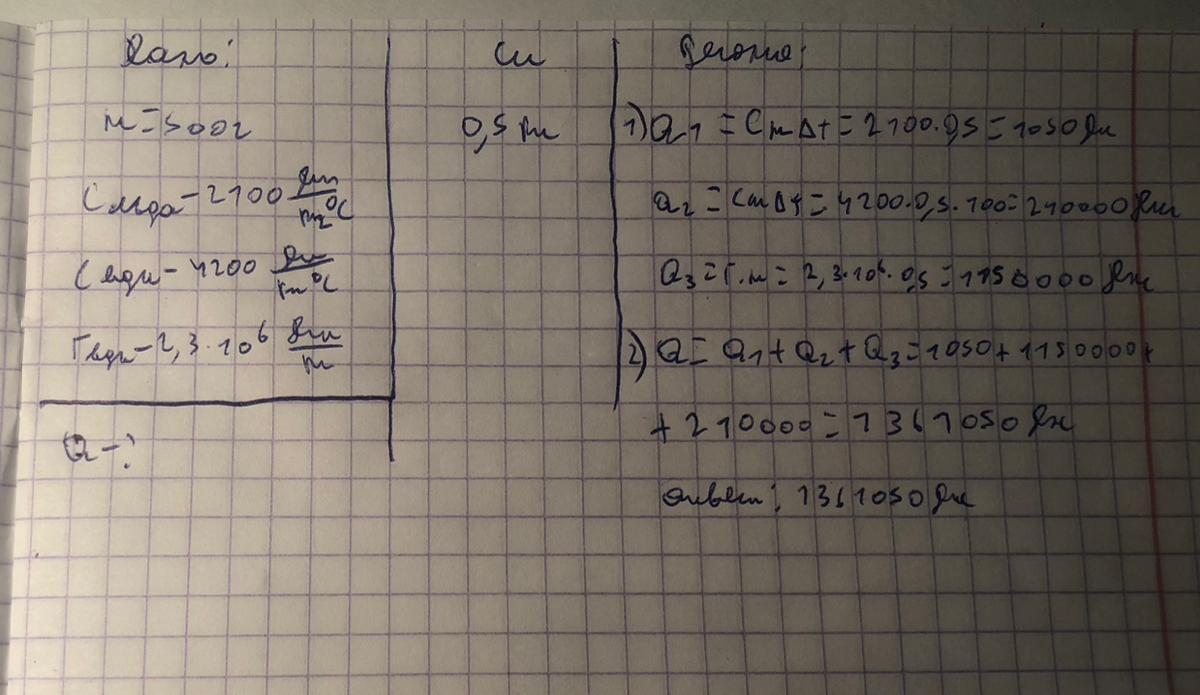 Дано:
m = 500г
C льда - 2100 Дж/кг°C
C воды - 4200 Дж/кг°C
r воды - 2,3 · 10⁶ Дж/кг
Q - ?
Си
0,5 кг
Решение:
1) Q₁ = Cm Δt = 2100 · 0,5 = 1050 Дж
Q₂ = Cm Δt = 4200 · 0,5 · 100 = 210000 Дж
Q₃ = r · m = 2,3 · 10⁶ · 0,5 = 1150000 Дж
2) Q = Q₁ + Q₂ + Q₃ = 1050 + 1150000 +
+ 210000 = 1361050 Дж
ответ: 1361050 Дж